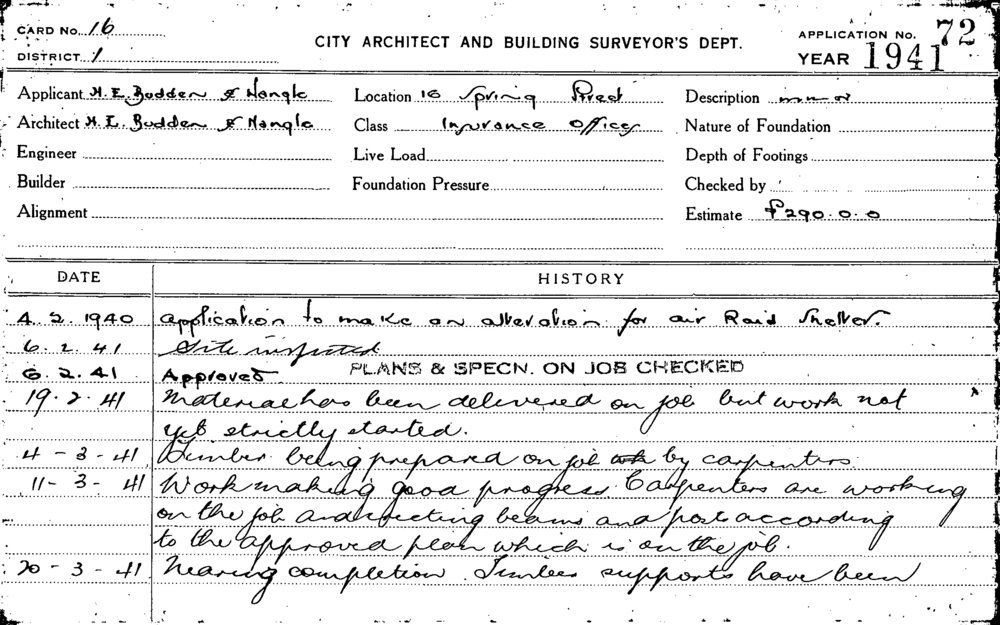 CARD No. 16
DISTRICT 1
CITY ARCHITECT AND BUILDING SURVEYOR'S DEPT.
APPLICATION No. 72
YEAR 1941
Applicant H. E. Budden & Nangle
Location 16 Spring Street
Description minor
Architect H. E. Budden & Nangle
Class Insurance Offices
Nature of Foundation
Engineer
Live Load
Depth of Footings
Builder
Foundation Pressure
Checked by
Alignment
Estimate £290.0.0
DATE HISTORY
4. 2. 1940 Application to make an alteration for air Raid Shelter.
6. 2. 41 Site inspected
6. 2. 41 Approved PLANS & SPECN. ON JOB CHECKED
19. 2. 41 Material has been delivered on job but work not
yet strictly started.
4 - 3 - 41 Timber being prepared on job by carpenters
11 - 3 - 41 Work making good progress. Carpenters are working
on the job and erecting beams and posts according
to the approved plan which is on the job.
20 - 3 - 41 Nearing completion. Timber supports have been